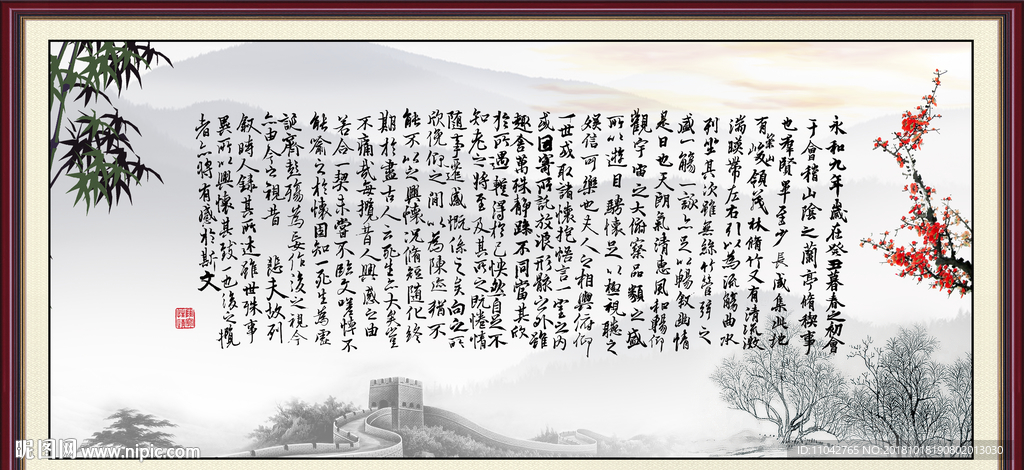 永和九年歲在癸丑暮春之初會
于會稽山陰之蘭亭脩稧事
也群賢畢至少長咸集此地
有崇山峻領茂林脩竹又有清流激
湍暎帶左右引以為流觴曲水
列坐其次雖無絲竹管弦之
盛一觴一詠亦足以暢敘幽情
是日也天朗氣清惠風和暢仰
觀宇宙之大俯察品類之盛
所以遊目騁懷足以極視聽之
娛信可樂也夫人之相與俯仰
一世或取諸懷抱悟言一室之內
或因寄所託放浪形骸之外雖
趣舍萬殊靜躁不同當其欣
於所遇暫得於己快然自足不
知老之將至及其所之既惓情
隨事遷感慨係之矣向之所
欣俛仰之間以為陳迹猶不
能不以之興懷況脩短隨化終
期於盡古人云死生亦大矣豈
不痛哉每攬昔人興感之由
若合一契未嘗不臨文嗟悼不
能喻之於懷固知一死生為虛
誕齊彭殤為妄作後之視今
亦由今之視昔 悲夫故列
敘時人錄其所述雖世殊事
異所以興懷其致一也後之攬
者亦將有感於斯文
昵图网 www.nipic.com
ID:11042765 NO:20181018190802013030